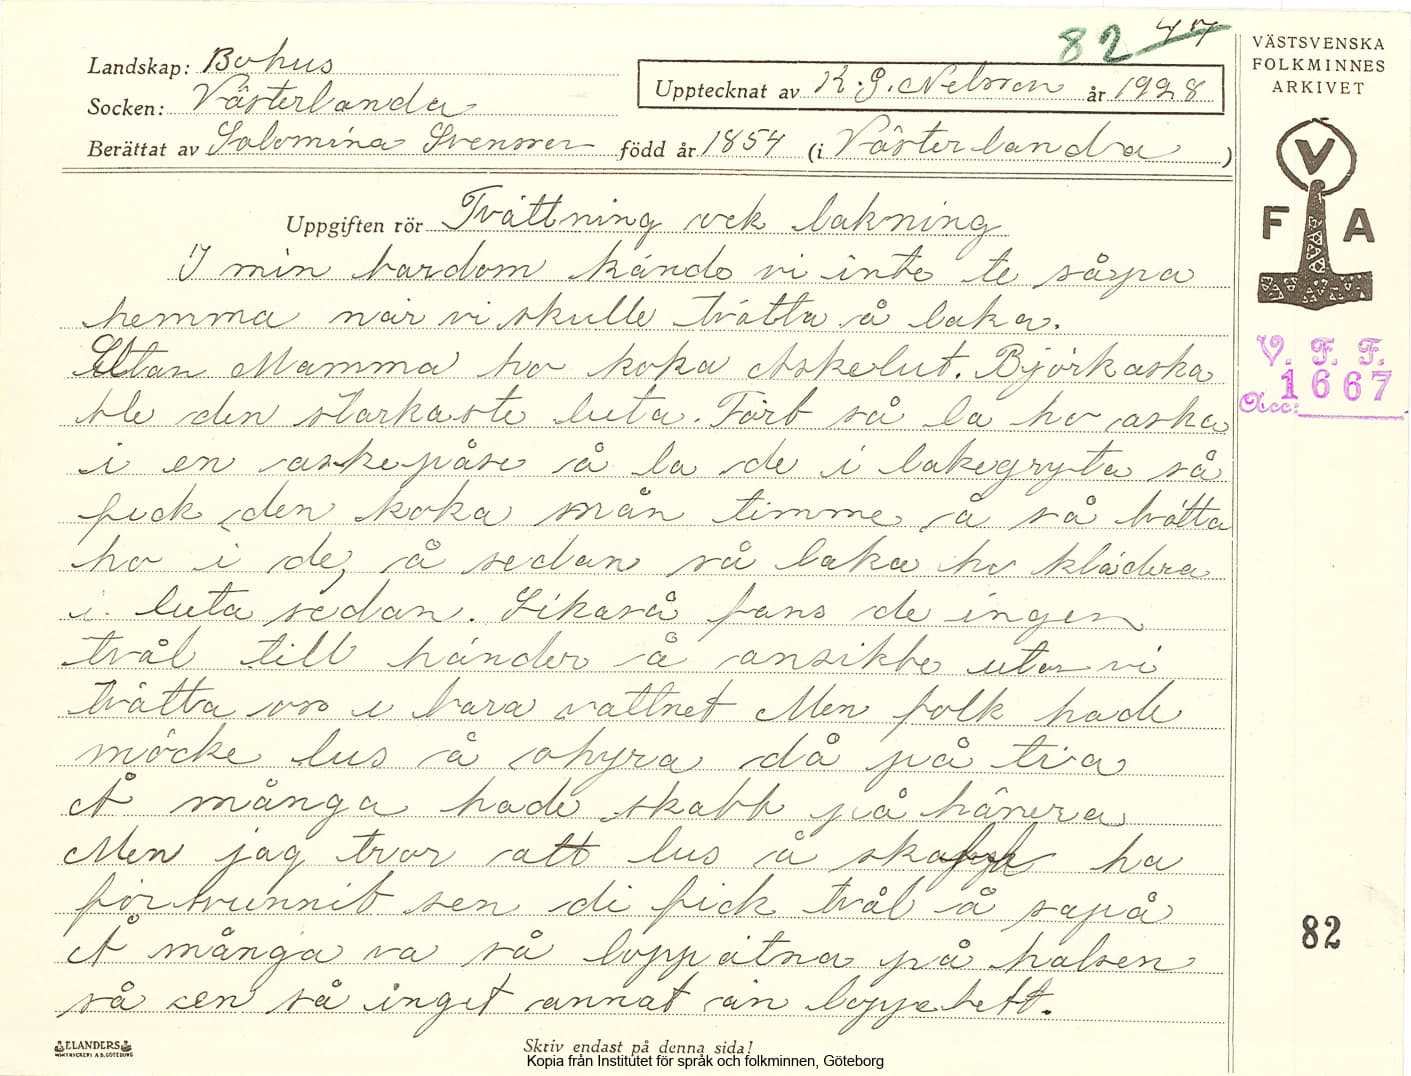 82 47
Landskap: Bohus
Socken: Västerlanda
Upptecknat av K. G. Nelsson år 1928
Berättat av Salomina Svensson född år 1854 (i Västerlanda)
VÄSTSVENSKA
FOLKMINNES
ARKIVET
V
F A
V. F. F.
Acc: 1667
Uppgiften rör Tvättning ock lakning
I min bardom kände vi inte te såpa
hemma när vi skulle tvätta å laka.
Utan Mamma ho koka Askelut. Björkaska
ble den starkaste luta. Förb så la ho aska
i en askepåse å la de i lakegryta så
fick den koka nån timme å så tvätta
ho i de, å sedan så laka ho klädera
i luta sedan. Likaså fans de ingen
tvål till händer å ansikte utan vi
tvätta oss i bara vattnet Men folk hade
möcke lus å ohyra då på tia
Å många hade skabb på hänera
Men jag tror att lus å skabb ha
försvunnit sen di fick tvål å sapå
Å många va så loppätna på halsen
så en så inget annat än loppebett.
82
ELANDERS
BOKTRYCKERI A.B. GÖTEBORG
Skriv endast på denna sida!
Kopia från Institutet för språk och folkminnen, Göteborg